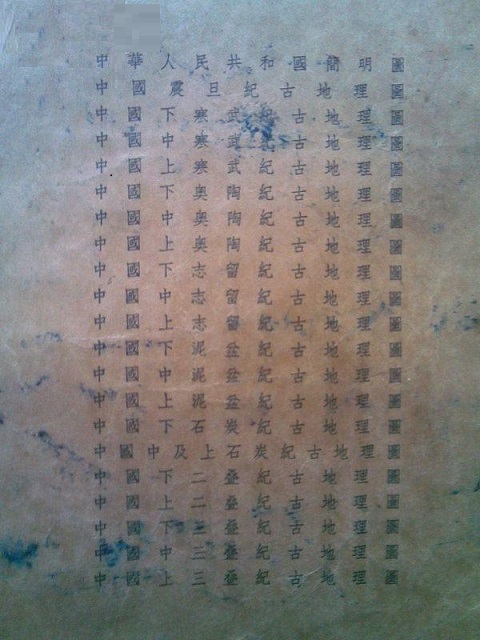 中華人民共和國簡明圖
中國震旦紀古地理圖
中國下寒武紀古地理圖
中國中寒武紀古地理圖
中國上寒武紀古地理圖
中國下奥陶紀古地理圖
中國中奥陶紀古地理圖
中國上奥陶紀古地理圖
中國下志留紀古地理圖
中國中志留紀古地理圖
中國上志留紀古地理圖
中國下泥盆紀古地理圖
中國中泥盆紀古地理圖
中國上泥盆紀古地理圖
中國下石炭紀古地理圖
中國中及上石炭紀古地理圖
中國下二叠紀古地理圖
中國上二叠紀古地理圖
中國下三叠紀古地理圖
中國中三叠紀古地理圖
中國上三叠紀古地理圖